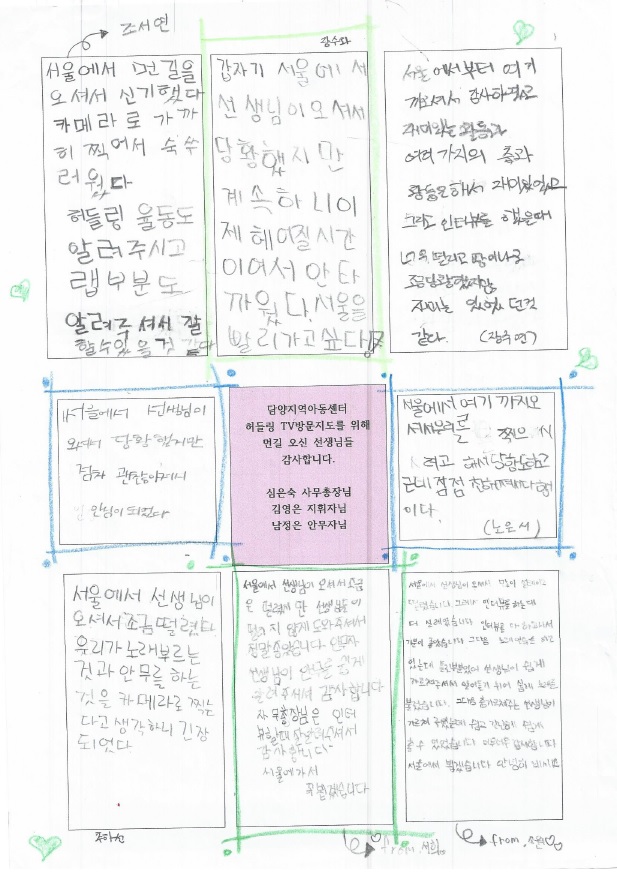 조서연
서울에서 먼길을
오셔서 신기했다
카메라로 가까
히 찍어서 쑥쑤
러웠다
허들링 율동도
알려주시고
랩부분도
알려주셔서 잘
할수있을것 같다
장수화
갑자기 서울에서
선생님이오셔서
당황했지만
계속하니이
제 헤어질시간
이여서 안타
까웠다. 서울을
빨리가고싶다
서울에서부터 여기
까오셔서 감사하였고
재미있는 활동과
여러가지의 춤과
활동을해서 재미있었고
그리고 인터뷰를 했을때
너무 떨리고 땀이나고
조금당황했지만
재미는 있었던것
같다.
서울에서 선생님이
오셔서 당황했지만
점차 괜찮아져서
안심이 되었다
담양지역아동센터
허들링 TV방문지도를 위해
먼길 오신 선생님들
감사합니다.
심은숙 사무총장님
김영은 지휘자님
남정은 안무자님
서울에서 여기까지오
셔서 찍으시
려고 해서 당황하고
긴
점점 다행
이다.
(노은서)
서울에서 선생님이
오셔서조금떨렸다.
우리가노래부르는
것과안무를하는
것을카메라로찍는
다고생각하니 긴장
되었다.
조하선
서울에서 선생님이 오셔서조금
은 떨렸지만 선생님들이
떨리지 않게 도와주셔서
정말좋았습니다. 안무자
선생님이 안무를 쉽게
알려주셔서 감사합니다
사무총장님은 인터
뷰할때 주셔서
감사합니다.
서울에가서
꼭뵙겠습니다
from.
서울에서 선생님이 오셔서
떨렸습니다. 그러나 인터뷰를하는데
더 떨렸습니다. 인터뷰를 다 하고나서
그다음 노래연습을 하고
있는데 선생님이 쉽게
불렀습니다. 그다음 선생님이
쉽고 쉽게
출 수 있었습니다.
서울에서 뵙겠습니다 안녕히 계세요
from.